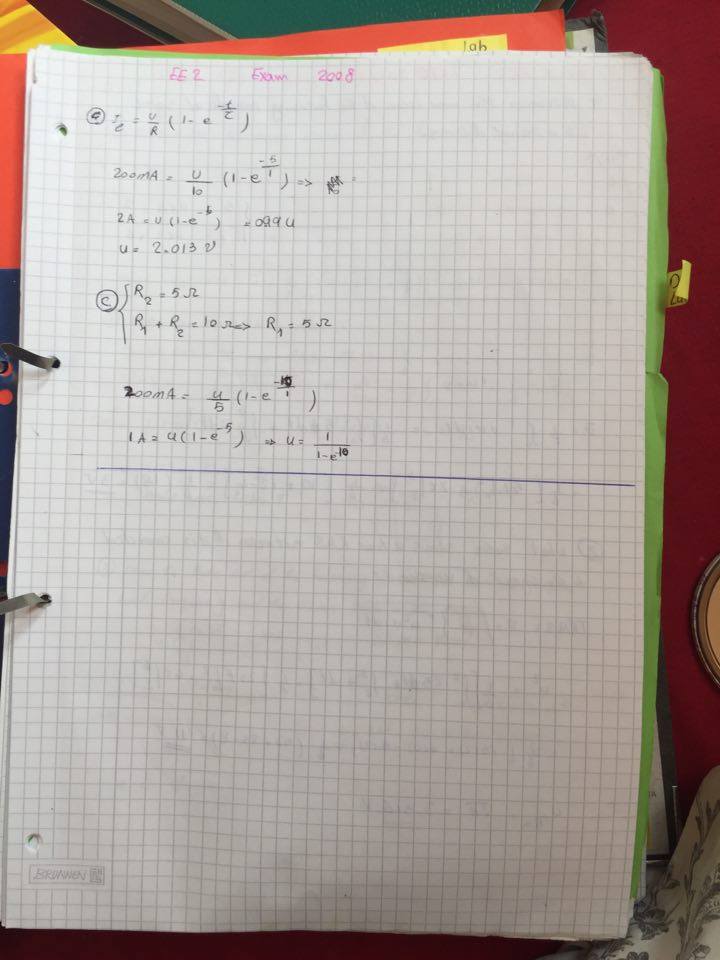 lab
EE2 Exam 2008
i = U/R (1 - e^(-t/τ))
200mA = U/10 (1 - e^(-5/1)) =>
2A = U (1 - e^(-5)) = 0.99 U
U = 2.013 V
c
R2 = 5 Ω
R1 + R2 = 10 Ω => R1 = 5 Ω
200mA = U/5 (1 - e^(-10/1))
1A = U (1 - e^(-5)) => U = 1/(1 - e^(-10))
BRUNNEN